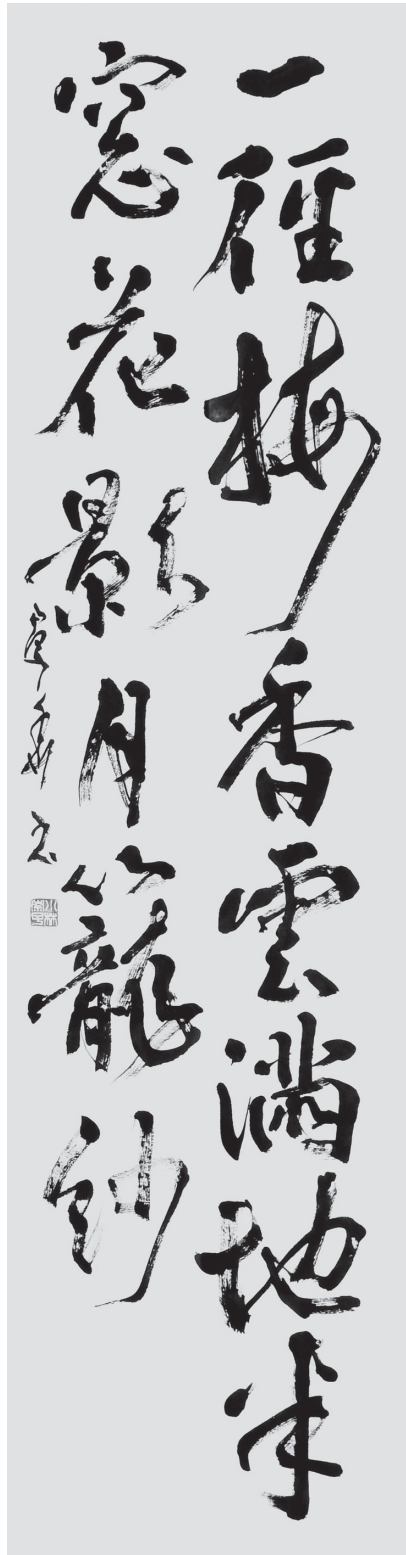 一徑梅香雲滿地半
窓花影月籠紗